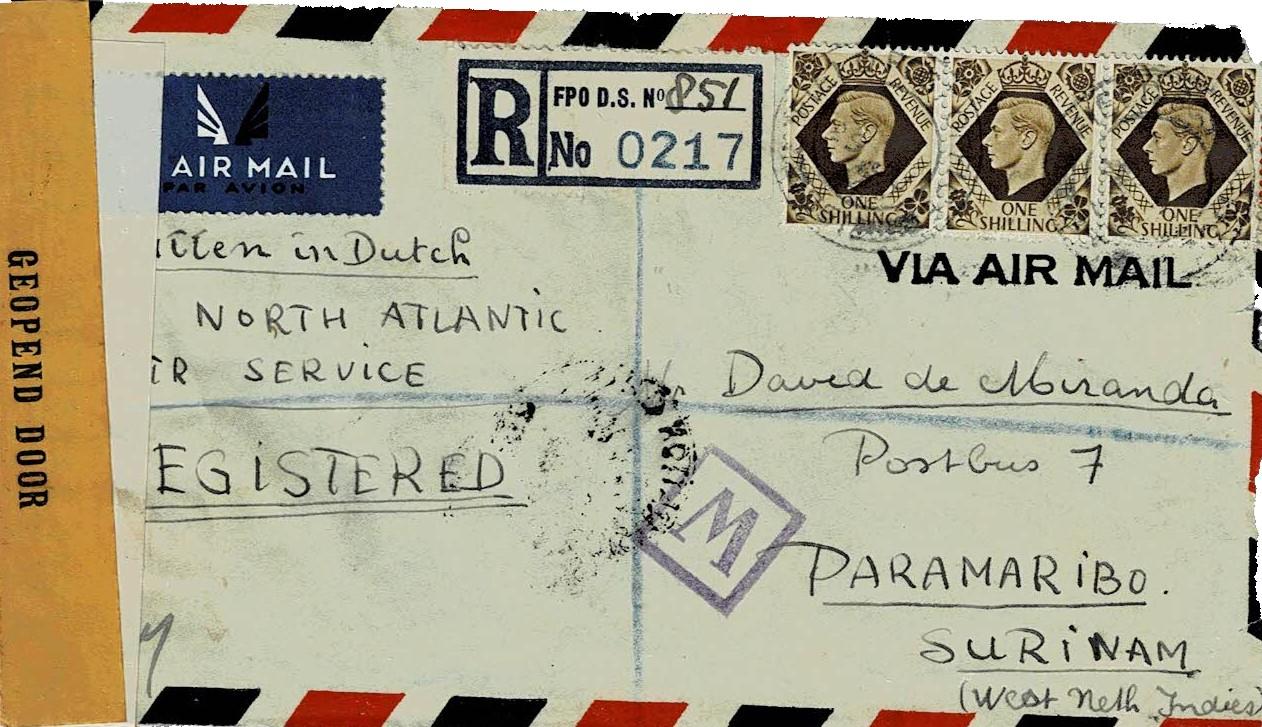 GEOPEND DOOR
AIR MAIL
PAR AVION
R
FPO D.S. Nº 851
No 0217
POSTAGE REVENUE
ONE SHILLING
POSTAGE REVENUE
ONE SHILLING
POSTAGE REVENUE
ONE SHILLING
VIA AIR MAIL
itten in Dutch
NORTH ATLANTIC
IR SERVICE
EGISTERED
David de Miranda
Postbus 7
W
PARAMARIBO.
SURINAM
(West Neth Indies)